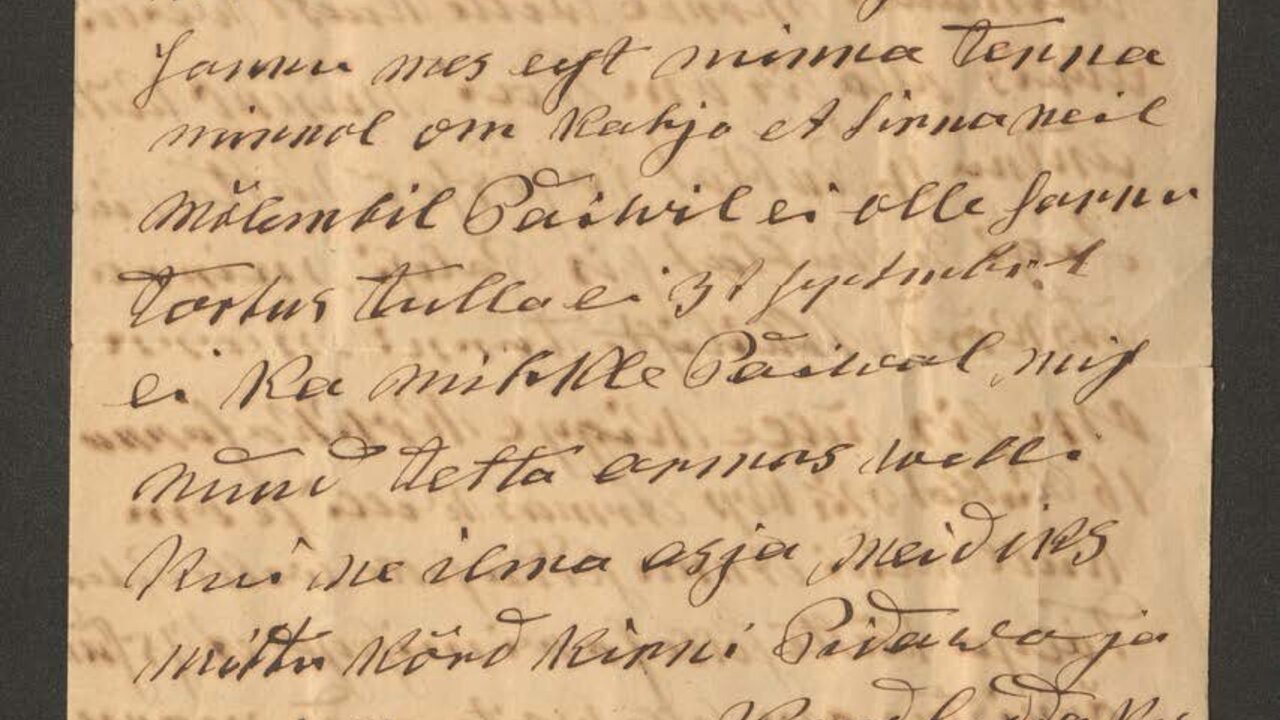 sannu mes eest minna tenna
minnol om kahjo et sinna neil
mõlembil Päiwil ei olle sannu
Tartus tulla ei 3l septembril
ei ka mihkle Päiwal, mis
nüüd tetta armas welli
kui ne ilma asja meid iks
mittu kõrd kinni Pidawa ja